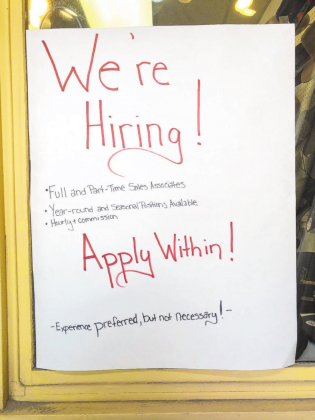 We're
Hiring!
• Full and Part-Time Sales Associates
• Year-round and Seasonal Positions Available
• Hourly + commission
Apply Within!
- Experience preferred, but not necessary! -